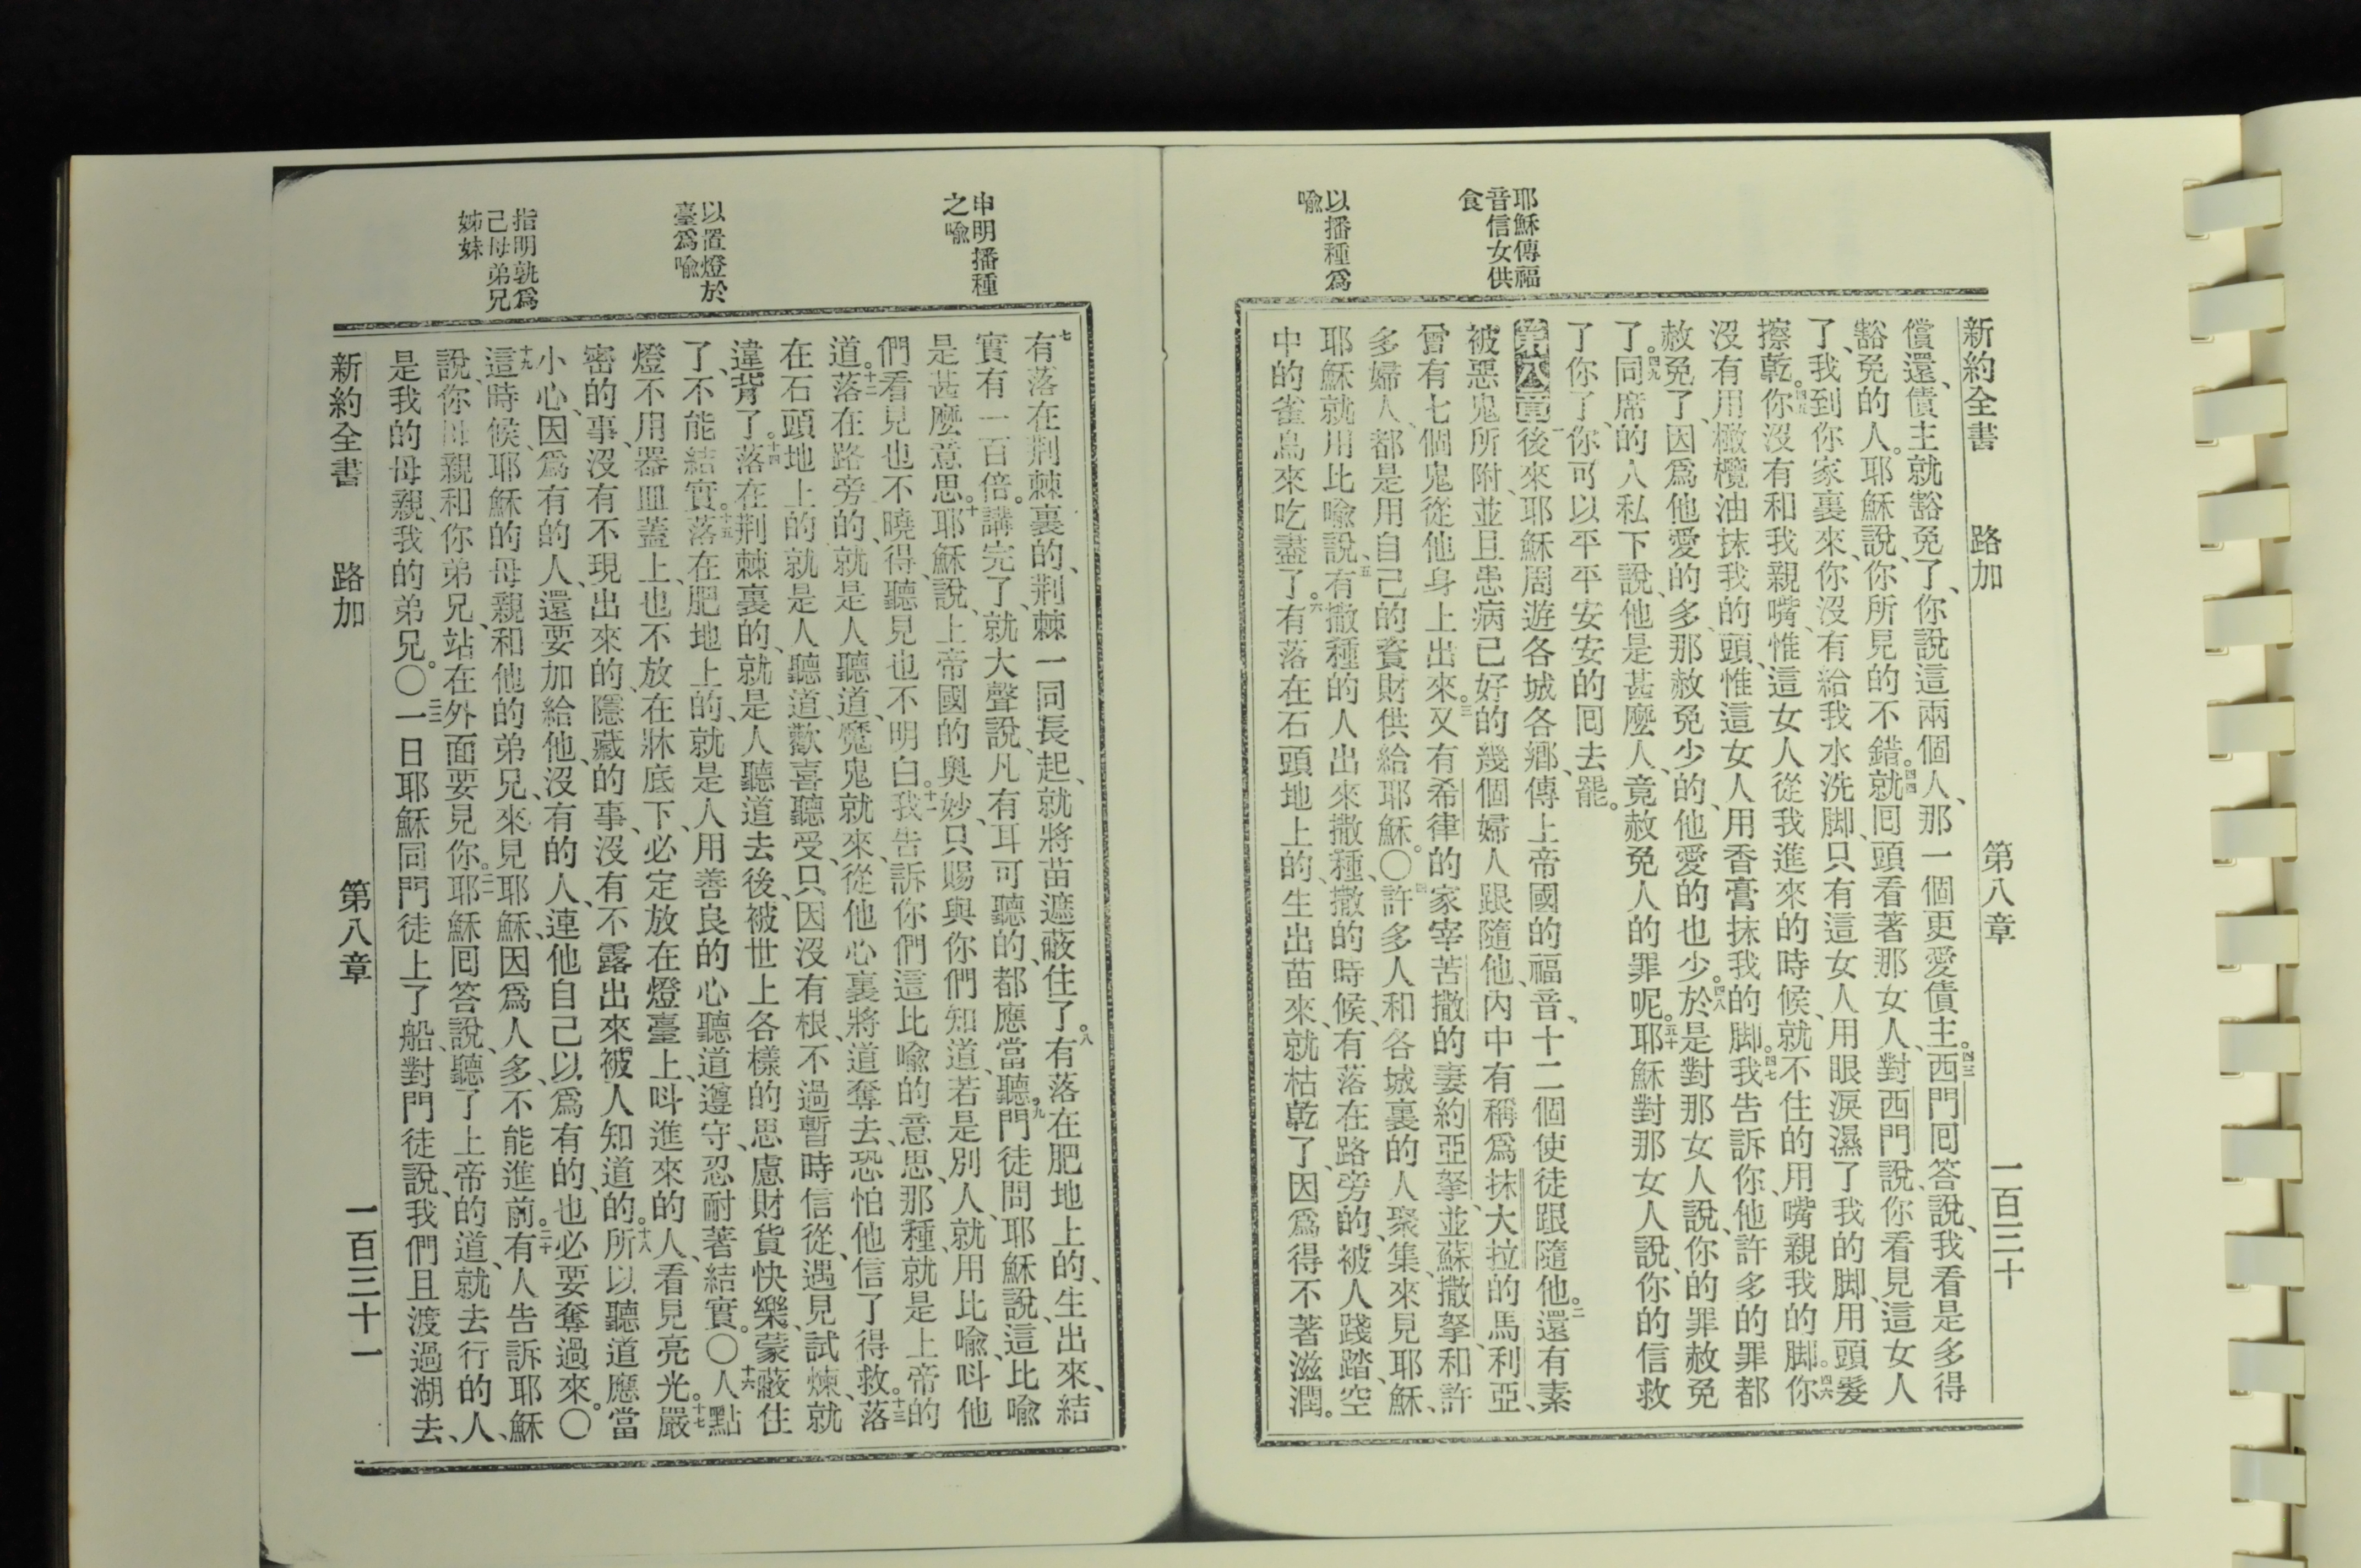 新約全書 路加 第八章 一百三十
耶穌傳福
音信女供
食
以播種爲
喩
償還、債主就豁免了、你說這兩個人、那一個更愛債主。四三西門囘答說、我看是多得
豁免的人。耶穌說、你所見的不錯。四四就囘頭看著那女人、對西門說、你看見這女人
了、我到你家裏來、你沒有給我水洗脚、只有這女人用眼淚濕了我的脚、用頭髮
擦乾。四五你沒有和我親嘴、惟這女人從我進來的時候、就不住的用嘴親我的脚。四六你
沒有用橄欖油抹我的頭、惟這女人用香膏抹我的脚。四七我告訴你、他許多的罪都
赦免了、因爲他愛的多、那赦免少的、他愛的也少。四八於是對那女人說、你的罪赦免
了。四九同席的人私下說、他是甚麼人、竟赦免人的罪呢。五十耶穌對那女人說、你的信救
了你了、你可以平平安安的囘去罷。
第八章 一後來耶穌周遊各城各鄕、傳上帝國的福音、十二個使徒跟隨他。二還有素
被惡鬼所附、並且患病已好的幾個婦人跟隨他、內中有稱爲抹大拉的馬利亞、
曾有七個鬼從他身上出來。三又有希律的家宰苦撒的妻約亞拏、並蘇撒拏、和許
多婦人、都是用自己的貲財供給耶穌。〇四許多人和各城裏的人聚集、來見耶穌、
耶穌就用比喩說、五有撒種的人出來撒種、撒的時候、有落在路旁的、被人踐踏、空
中的雀鳥來吃盡了。六有落在石頭地上的、生出苗來、就枯乾了、因爲得不著滋潤。
申明播種
之喩
以置燈於
臺爲喩
指明孰爲
己母弟兄
姊妹
七有落在荆棘裏的、荆棘一同長起、就將苗遮蔽住了。八有落在肥地上的、生出來、結
實有一百倍。講完了、就大聲說、凡有耳可聽的、都應當聽。九門徒問耶穌說、這比喩
是甚麼意思。十耶穌說、上帝國的奧妙、只賜與你們知道、若是別人、就用比喩、呌他
們看見也不曉得、聽見也不明白。十一我告訴你們這比喩的意思、那種、就是上帝的
道。十二落在路旁的、就是人聽道、魔鬼就來、從他心裏將道奪去、恐怕他信了得救。十三落
在石頭地上的、就是人聽道、歡喜聽受、只因沒有根、不過暫時信從、遇見試煉、就
違背了。十四落在荆棘裏的、就是人聽道去後、被世上各樣的思慮財貨快樂、蒙蔽住
了、不能結實。十五落在肥地上的、就是人用善良的心聽道遵守、忍耐著結實。〇十六人點
燈、不用器皿蓋上、也不放在牀底下、必定放在燈臺上、呌進來的人、看見亮光。十七嚴
密的事、沒有不現出來的、隱藏的事、沒有不露出來被人知道的。十八所以聽道應當
小心、因爲有的人、還要加給他、沒有的人、連他自己以爲有的、也必要奪過來。〇
十九這時候、耶穌的母親和他的弟兄、來見耶穌、因爲人多、不能進前。二十有人告訴耶穌
說、你母親和你弟兄、站在外面要見你。二一耶穌囘答說、聽了上帝的道、就去行的人、
是我的母親、我的弟兄。〇二二一日耶穌同門徒上了船、對門徒說、我們且渡過湖去、
新約全書 路加 第八章 一百三十一